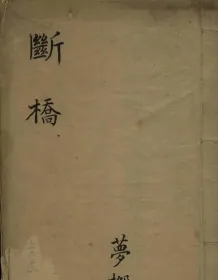 斷橋
夢